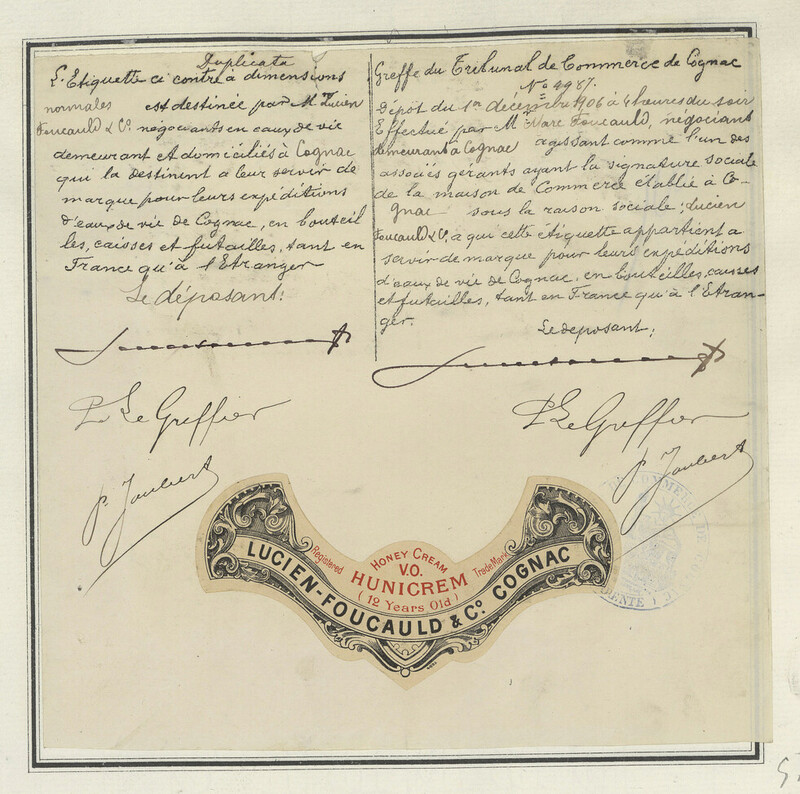 Duplicata
L'Etiquette ci contre à dimensions
normales est destinée par M. Lucien
Foucauld & Co. négociants en eaux de vie
demeurant et domiciliés à Cognac
qui la destinent à leur servir de
marque pour leurs expéditions
d'eaux de vie de Cognac, en bouteil
les, caisses et futailles, tant en
France qu'à l'Etranger
Le déposant:
P. Le Greffier
P. Joubert
Greffe du Tribunal de Commerce de Cognac
No 4987.
Dépôt du 1er décembre 1906 à 4 heures du soir
Effectué par M Marc Foucauld, négociant
demeurant à Cognac agissant comme l'un des
associés gérants ayant la signature sociale
de la maison de Commerce établie à Co-
gnac sous la raison sociale: Lucien
Foucauld & Co, à qui cette étiquette appartient a
servir de marque pour leurs expéditions
d'eaux de vie de Cognac, en bouteilles, caisses
et futailles, tant en France qu'à l'Etran-
ger.
Le deposant:
P. Le Greffier
P. Joubert
Registered
HONEY CREAM
Trade Mark
V.O.
HUNICREM
(12 Years Old)
LUCIEN-FOUCAULD & Co. COGNAC